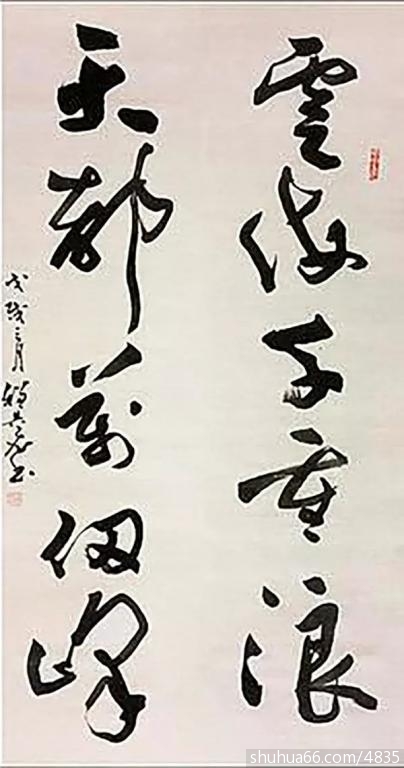 雲海千重浪
天都萬仞峰
戊戌三月
書
shuhua66.com/4835